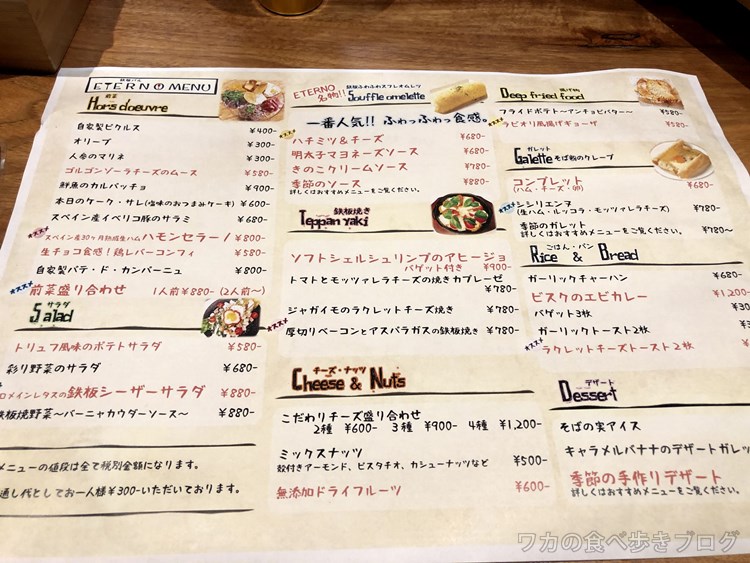 鉄板バル
ETERNO MENU
前菜
Hors d'oeuvre
自家製ピクルス ¥400-
オリーブ ¥300-
人参のマリネ ¥300-
ゴルゴンゾーラチーズのムース ¥580-
鮮魚のカルパッチョ ¥900-
本日のケーク・サレ(塩味のおつまみケーキ) ¥600-
スペイン産イベリコ豚のサラミ ¥680-
オススメ
スペイン産30ヶ月熟成生ハム ハモンセラーノ ¥800-
生チョコ食感!鶏レバーコンフィ ¥580-
自家製パテ・ド・カンパーニュ ¥800-
オススメ
前菜盛り合わせ 1人前¥880-(2人前~)
サラダ
Salad
トリュフ風味のポテトサラダ ¥580-
彩り野菜のサラダ ¥680-
ロメインレタスの鉄板シーザーサラダ ¥880-
鉄板焼野菜~バーニャカウダーソース~ ¥880-
メニューの価段は全て税別金額になります。
通し代としてお一人様¥300-いただいております。
ETERNO
名物!!
鉄板ふわふわスフレオムレツ
Souffle omelette
一番人気!! ふわっふわっ食感。
ハチミツ&チーズ ¥680-
明太子マヨネーズソース ¥680-
きのこクリームソース ¥780-
季節のソース ¥880-
詳しくはおすすめメニューをご覧ください。
鉄板焼き
Teppan yaki
ソフトシェルシュリンプのアヒージョ
バゲット付き ¥900-
トマトとモッツァレラチーズの焼きカプレーゼ
¥780-
ジャガイモのラクレットチーズ焼き ¥780-
オススメ
厚切りベーコンとアスパラガスの鉄板焼き ¥780-
チーズ・ナッツ
Cheese & Nuts
こだわりチーズ盛り合わせ
2種 ¥600- 3種 ¥900- 4種 ¥1,200-
ミックスナッツ ¥500-
殻付きアーモンド、ピスタチオ、カシューナッツなど
無添加ドライフルーツ ¥600-
揚げ物
Deep fried food
フライドポテト~アンチョビバター~ ¥580-
ラビオリ風揚げギョーザ ¥580-
ガレット
Galette そば粉のクレープ
コンプレット
(ハム・チーズ・卵) ¥680-
オススメ
シシリエンヌ
(生ハム・ルッコラ・モッツァレラチーズ) ¥780-
季節のガレット ¥780~
詳しくはおすすめメニューをご覧ください。
ごはん・パン
Rice & Bread
ガーリックチャーハン ¥680-
ビスクのエビカレー ¥1,200-
バゲット3枚
ガーリックトースト2枚
オススメ
ラクレットチーズトースト2枚
デザート
Dessert
そばの実アイス
キャラメルバナナのデザートガレッ
季節の手作りデザート
詳しくはおすすめメニューをご覧ください。
ワカの食べ歩きブログ